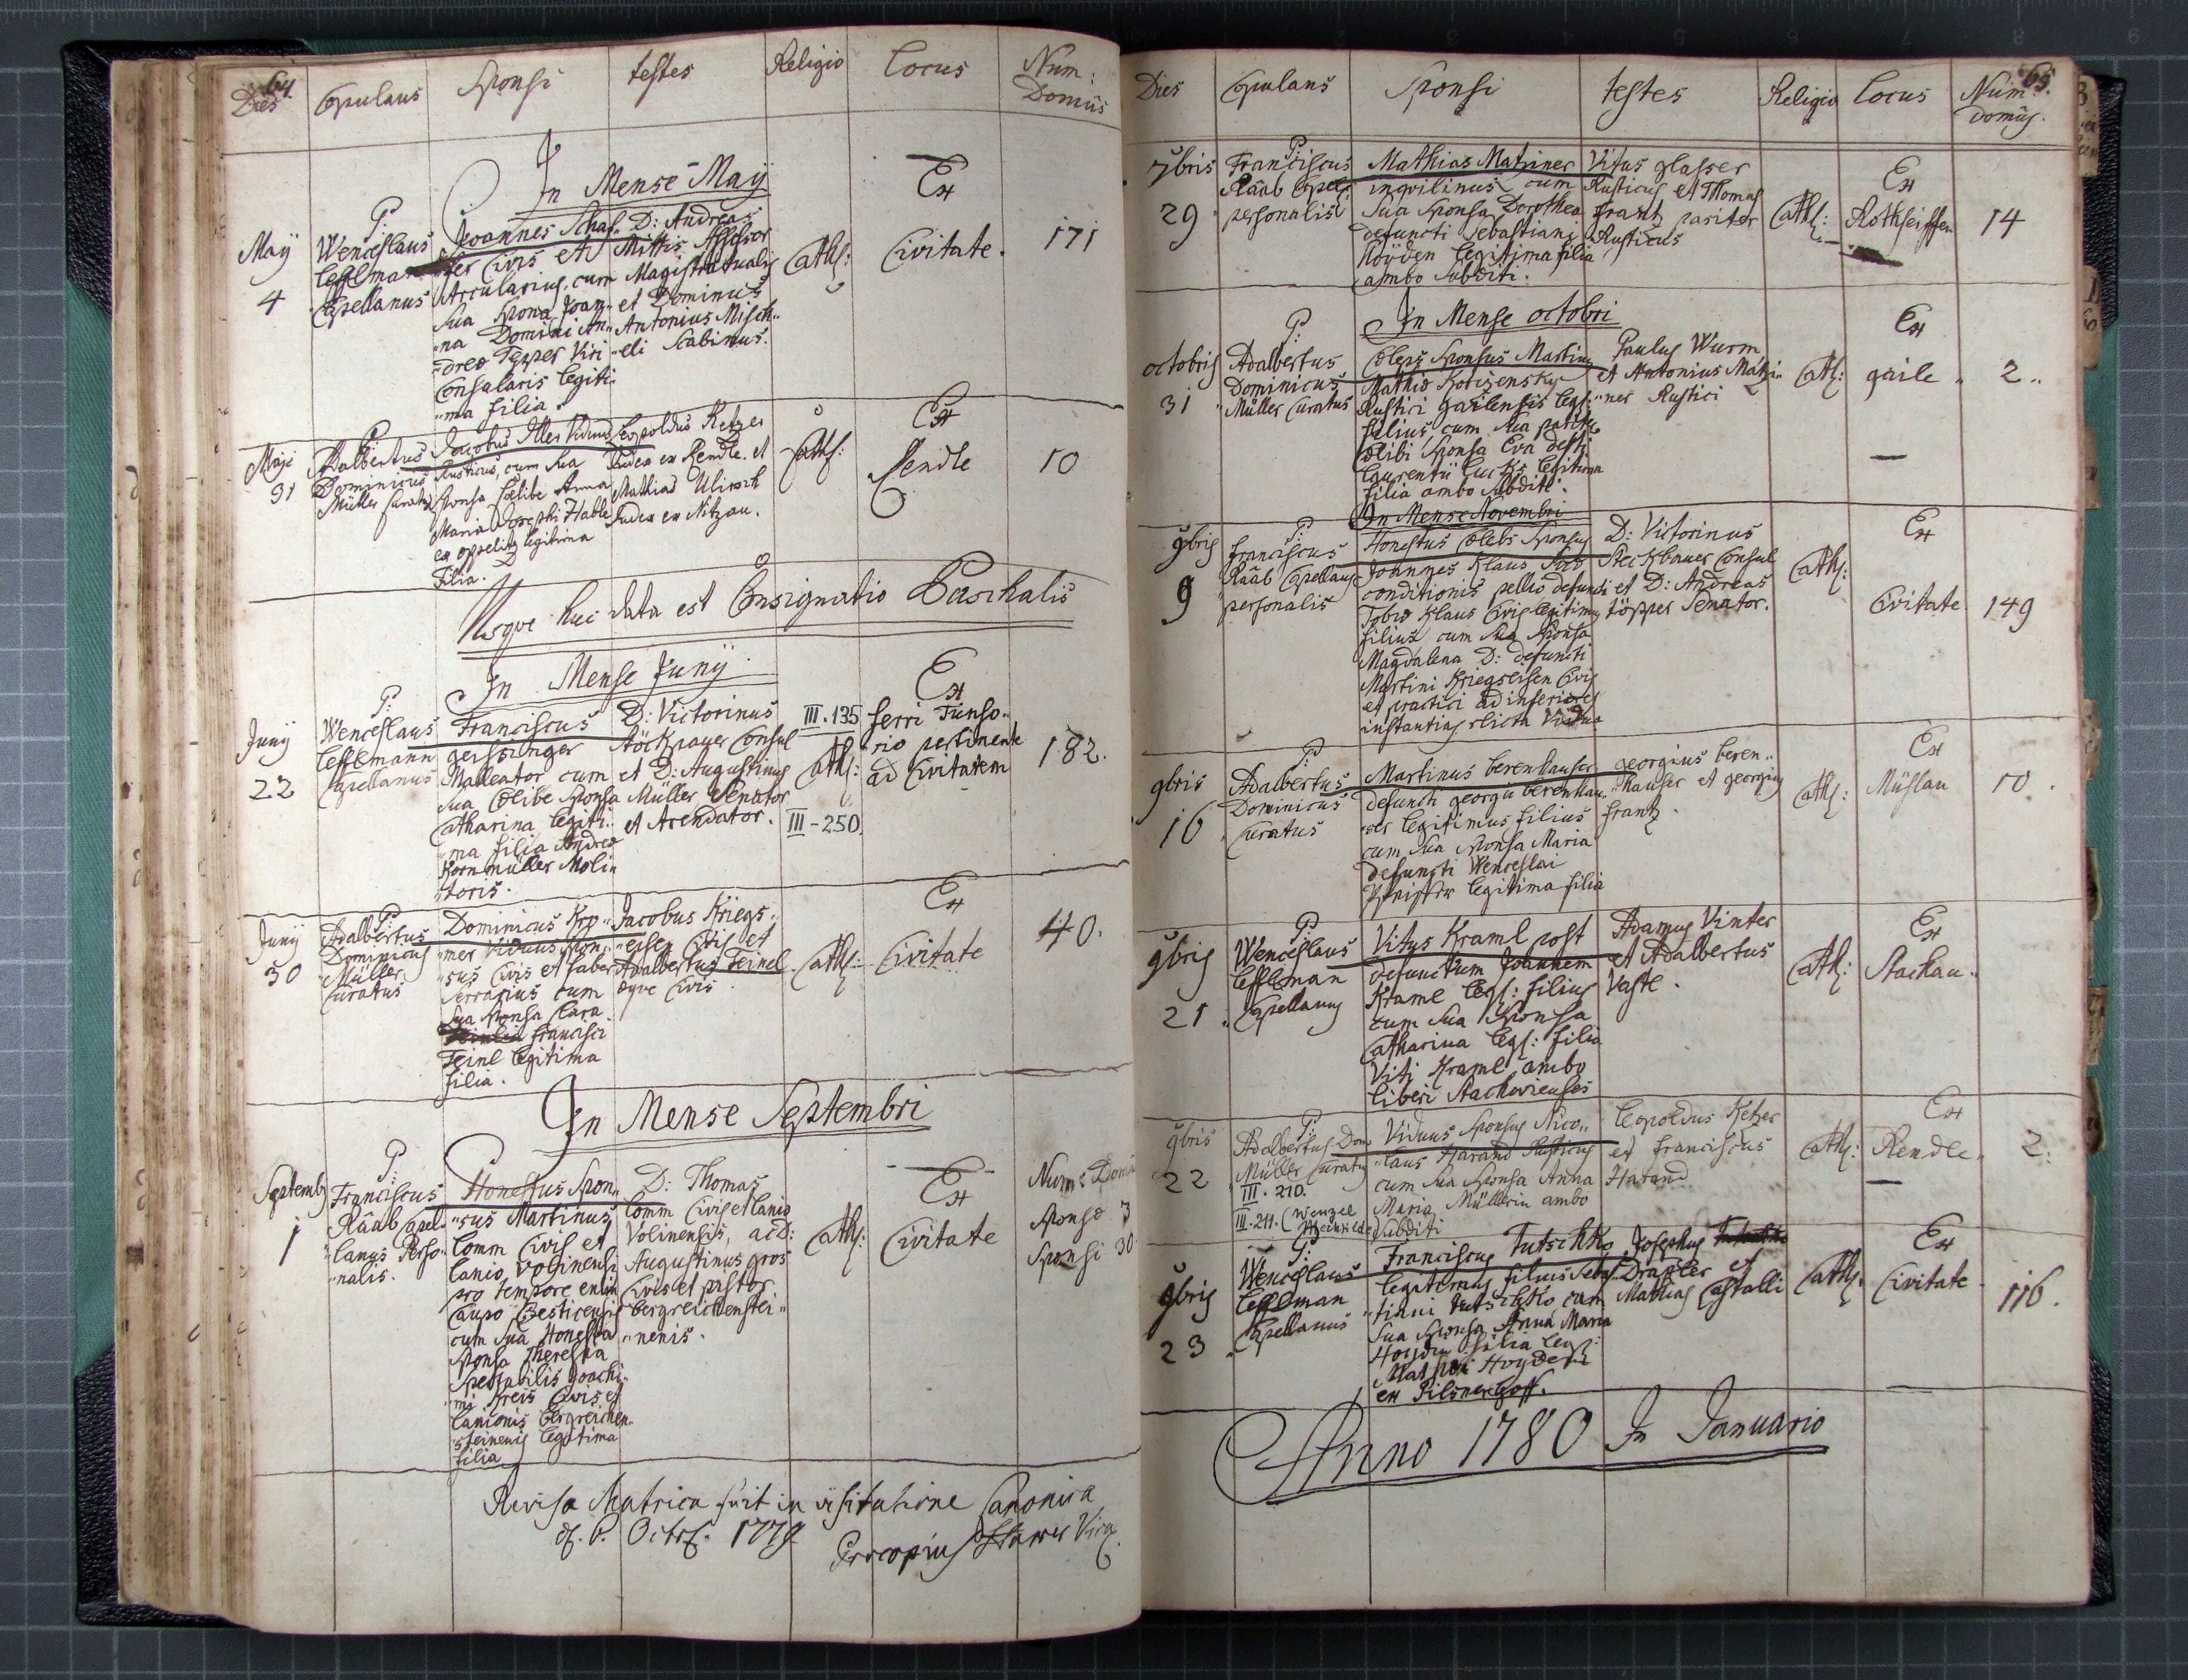 64.
Dies Copulans Sponsi testes Religio Locus Num: Domûs
In Mense Maÿ
Maÿ
4
P:
Wenceslaus
Leffelman
Capellanus
Joannes Schaf„
„fer Civis et
Arcularius, cum
Sua Sponsa Joan„
„na Domini An„
„dreæ Tepper Viri
Consularis legiti„
„ma filia.
D: Andreas
Mittis Assessor
Magistratualis
et Dominus
Antonius Misch„
„eli Scabinus.
Cath:
Ex
Civitate.
171
Maji
31
P:
Adalbertus
Dominicus
Müller Curatus
Jacobus Iller Viduus
Rusticus, cum Sua
Sponsa Cœlibe Anna
Maria Josephi Hable
ex oppelitz legitima
Filia.
Leopoldus Ketzer
Judex ex Rendle. et
Mathias Ulirsch
Judex ex Nitzau.
Cath:
Ex
Rendle
10
Usque huc data est Consignatio Paschalis
In Mense Junÿ
Junÿ
22
P:
Wenceslaus
Leffelmann
Capellanus
Franciscus
geissinger
Malleator cum
Sua Cœlibe Sponsa
Catharina legiti„
„ma filia Andreæ
Kornmüller Moli„
„toris.
D: Victorinus
Stöckpauer Consul
et D: Augustinus
Müller Senator
et Arendator.
III. 135
Cath:
III - 250.
Ex
ferri Tunso„
„rio pertinente
ad Civitatem
182.
Junÿ
30
P:
Adalbertus
Dominicus
Müller
Curatus
Dominicus Kro„
„mer Viduus Spon„
„sus Civis et faber
Serrarius cum
Sua Sponsa Clara
Francisci
Feinl legitima
filia.
Jacobus Kriegs„
„eisen Civis et
Adalbertus Feinel
æque Civis.
Cath:
Ex
Civitate
40.
In Mense Septembri
Septemb:
1
P:
Franciscus
Râab Capel„
„lanus Perso„
„nalis.
Honestus Spon„
„sus Martinus
Comm Civis et
Lanio Volinensis
pro tempore enim
Caupo Zesticensis
cum Sua Honesta
Sponsa Theresia
Spectabilis Joachi„
„mi Kreis Civis et
Lanionis bergreichen„
„steinensis legitima
filia
D: Thomas
Comm Civis et Lanio
Volinensis, ac D:
Augustinus gros
Civis et pistor
bergreichenstei„
„nenis.
Cath:
Ex
Civitate
Num: Domûs
Sponsæ 3
Sponsi 30.
Revisa Matrica fuit in visitatione Canonica
d. 6. Octob. 1779
Procopius Vica.
65.
Dies Copulans Sponsi testes Religio Locus Num domûs.
7bris
29
P:
Franciscus
Râab Capel:
personalis
Mathias Matzner
inqvilinus cum
Sua Sponsa Dorothea
defuncti Sebastiani
Höyden legitima filia
ambo Subditi.
Vitus glasser
Rusticus et Thomas
frantz pariter
Rusticus
Cath:
Ex
Rothseiffen
14
In Mense octobri
octobris
31
P:
Adalbertus
Dominicus
Müller Curatus
Cœlebs Sponsus Martinus
Mathiæ Korizensky
Rustici gailensis legi:
filius, cum Sua pariter
Cœlibi Sponsa Eva defti:
Laurentii Lucks legitima
filia ambo Subditi.
Paulus Wurm
et Antonius Mátzi„
„ner Rustici
Cath:
Ex
gaile „
2 „
In Mense Novembri
9bris
9
P:
Franciscus
Râab Capellanus
personalis
Honestus Cœlebs Sponsus
Joannes Klaus Suæ
conditionis pellio defuncti
Tobiæ Klaus Civis legitimus
filius cum Sua Sponsa
Magdalena D: defuncti
Martini Kriegseisen Civis
et practici ad inferiores
instantias relicta Vidua
D: Victorinus
Steckbauer Consul
et D: Andreas
töpper Senator.
Cath:
Ex
Civitate
149
9bris
16
P:
Adalbertus
Dominicus
Curatus
Martinus berenhauser
defuncti georgii berenhau„
„ser legitimus filius
cum Sua Sponsa Maria
defuncti Wenceslai
legitima filia
georgius beren„
„hauser et georgius
frantz.
Cath:
Ex
Müslau
10.
9bris
21
P:
Wenceslaus
Leffelman
Capellanus
Vitus Kraml post
defunctum Joannem
Kraml legi: filius
cum Sua Sponsa
Catharina legi: filia
Viti Kraml ambo
liberi Stachovienses
Adamus Vinter
et Adalbertus
Vastl.
Cath:
Ex
Stachau.
9bris
22
P:
Adalbertus Dom
Müller Curatus
III. 210.
III. 211. (Wenzel
Viduus Sponsus Nico„
„laus Harand Rusticus
cum Sua Sponsa Anna
Maria Müllerin ambo
Subditi
Leopoldus Ketzer
et Franciscus
Harand
Cath:
Ex
Rendle.
2.
9bris
23
P:
Wenceslaus
Leffelman
Capellanus
Franciscus Tutschko
legitimus filius Sebas„
„tiani Tutschko, cum
Sua Sponsa Anna Maria
Hoydin filia legi:
Mathiæ Hoyden
ex Pilsnerhoff.
Josephus
Draxler et
Mathias Castalli
Cath:
Ex
Civitate
116.
Anno 1780 In Januario